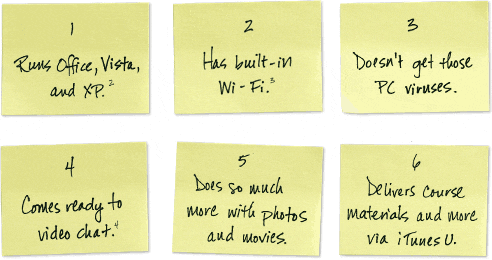 1
Runs Office, Vista,
and XP.2
2
Has built-in
Wi-Fi.3
3
Doesn't get those
PC viruses.
4
Comes ready to
video chat.4
5
Does so much
more with photos
and movies.
6
Delivers course
materials and more
via iTunes U.